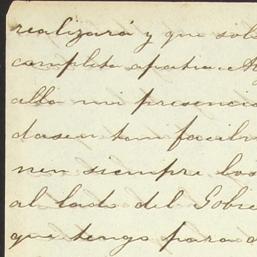 realizará y que sol
completa apatia. A
allá mi presencia
dasen tan facilm
nen siempre los
al lado del Gobie
que tengo para